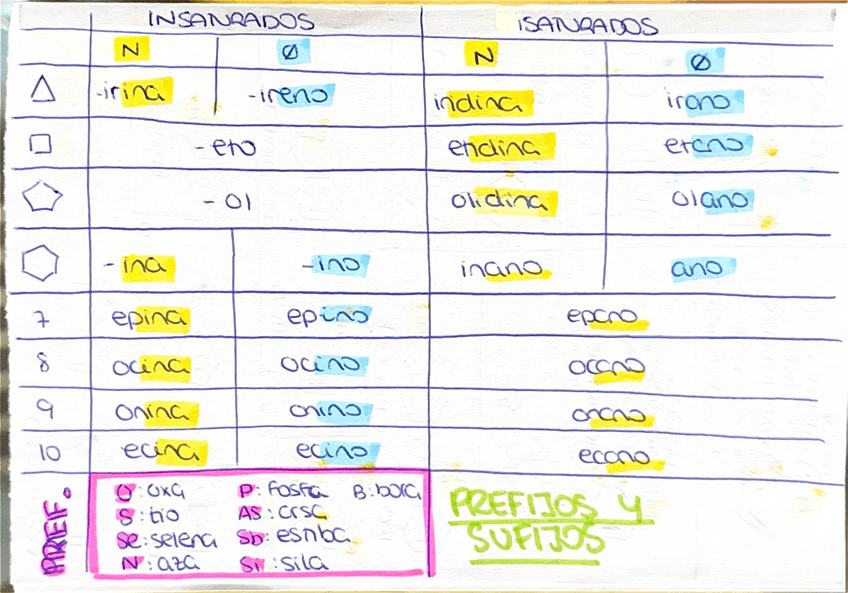 INSATURADOS iSATURADOS
N Ø N Ø
-irina -ireno iridina irano
- eto etidina etano
- ol olidina olano
- ina -ino inano ano
7 epina epino epano
8 ocina ocino ocano
9 onina onino onano
10 ecina ecino ecano
PREF.
O: oxa P: fosfa B: bora
S: tio AS: arsa
Se: selena Sb: estiba
N: aza Si: sila
PREFIJOS Y
SUFIJOS